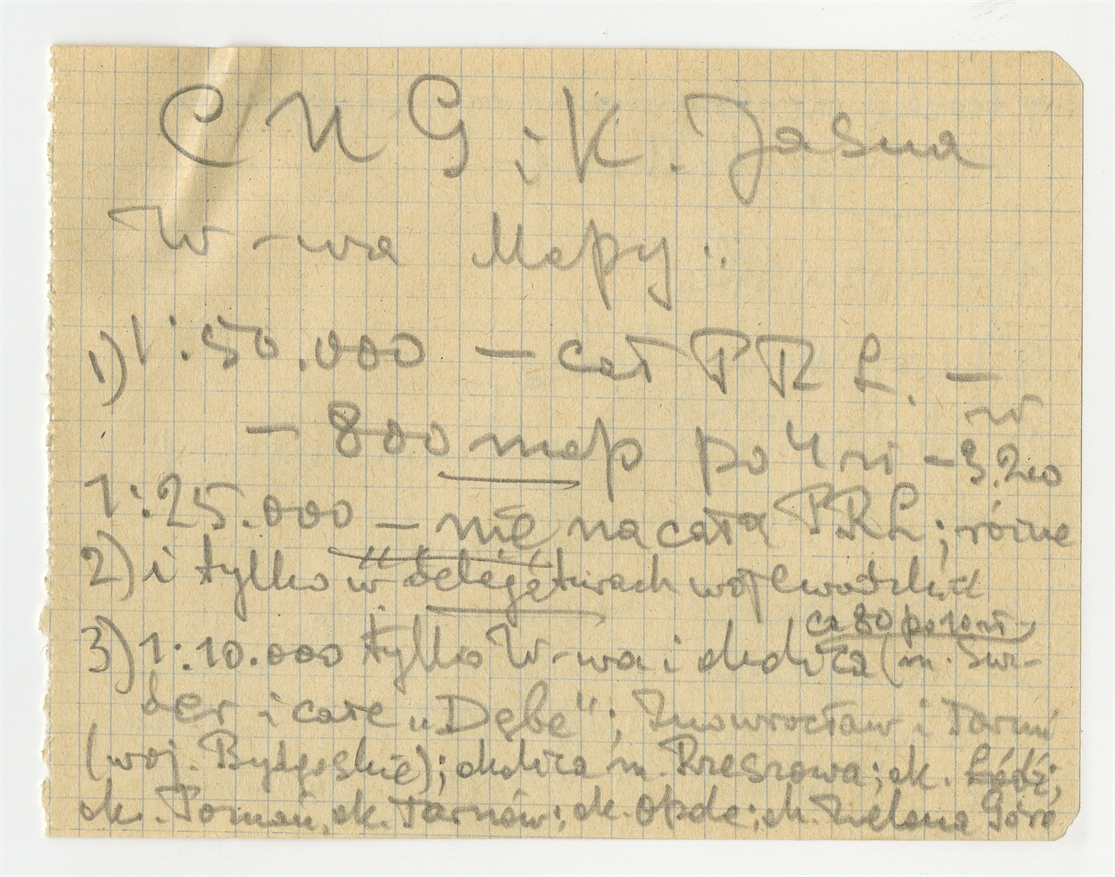 C U G i K. Jasna
W-wa Mapy:
1) 1:50.000 – cał PRL. – w
– 800 map po 4 zł – 3.200
1:25.000 – nie na całą PRL; różne
2) i tylko w delegaturach wojewódzkich
ca 80 pozoń
3) 1:10.000 tylko W-wa i okolica (m. Świ-
der i całe „Dębe"; Inowrocław i Toruń
(woj. Bydgoskie); okolica m. Rzeszowa; ok. Łódź;
ok. Poznań, ok. Tarnów; ok. Opole; ok. Zielona Góra